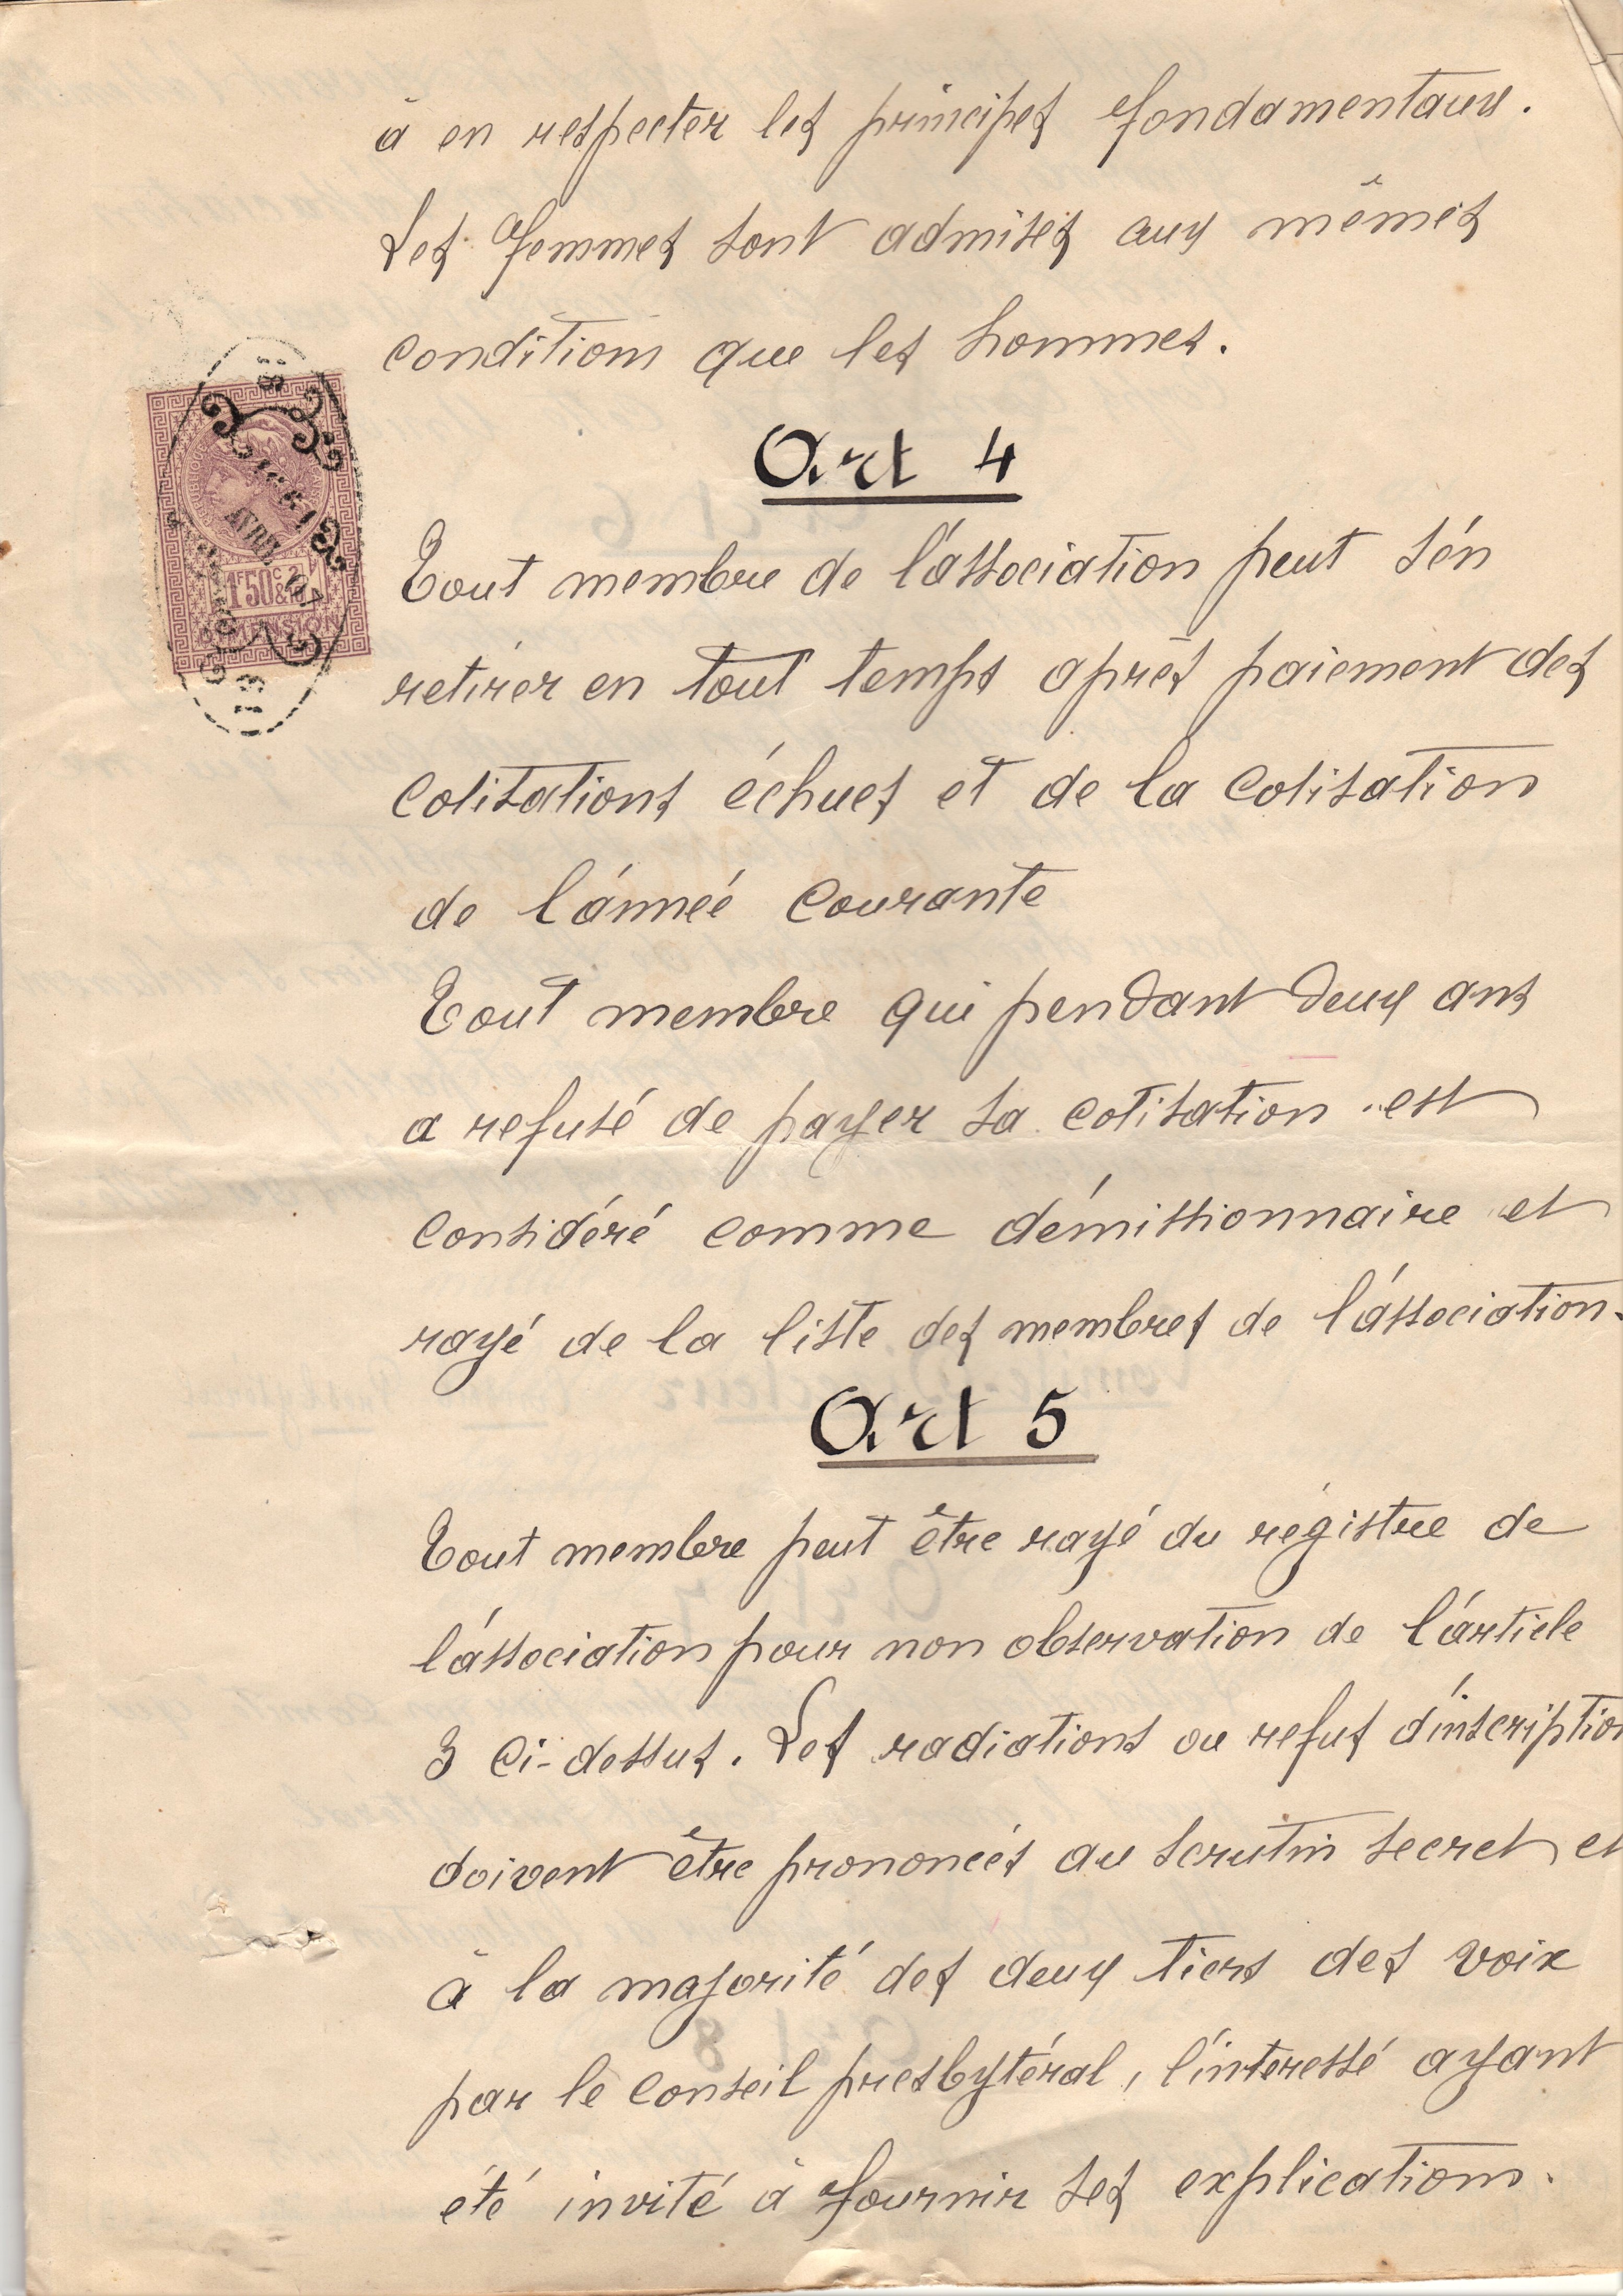 à en respecter les principes fondamentaux.
Les femmes sont admises aux mêmes
conditions que les hommes.
Art 4
Tout membre de l'association peut s'en
retirer en tout temps après paiement des
cotisations échues et de la cotisation
de l'année courante
Tout membre qui pendant deux ans
a refusé de payer sa cotisation est
considéré comme démissionnaire et
rayé de la liste des membres de l'association.
Art 5
Tout membre peut être rayé du régistre de
l'association pour non observation de l'article
3 ci-dessus. Les radiations ou refus d'inscription
doivent être prononcés au scrutin secret et
à la majorité des deux tiers des voix
par le conseil presbytéral, l'intéressé ayant
été invité à fournir ses explications.
1F50C
DIMENSION